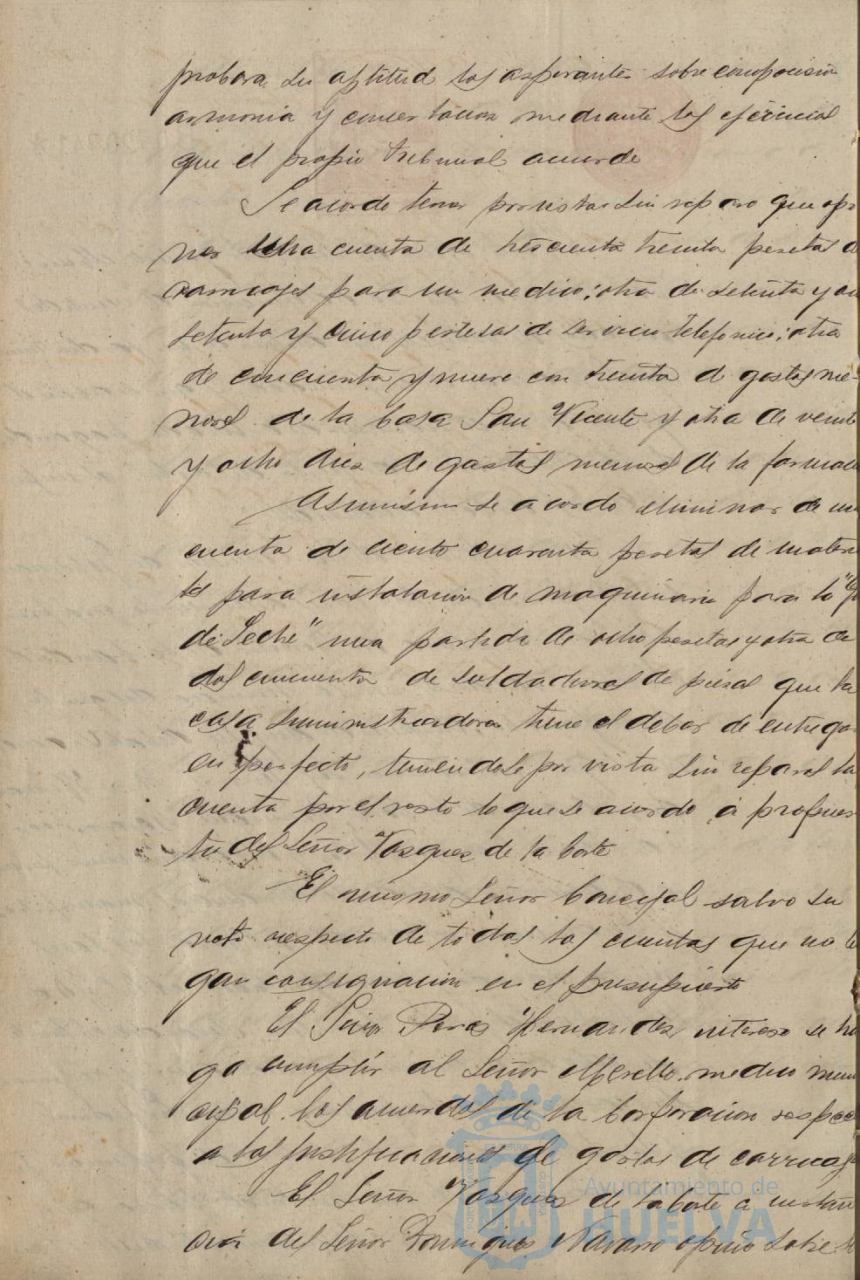 probara su aptitud los aspirantes sobre composicion
armonia y concertacion mediante los ejercicios
que el propio tribunal acuerde
Se acordo tener por vistas sin reparo que opo
ner una cuenta de trescienta treinta pesetas d
carruajes para un medico; otra de setenta y
setenta y cinco pesetas de servicio telefonico; otra
de cincuenta y nueve con treinta d gastos me-
nores de la Casa San Vicente y otra de veinte
y ocho dies de gastos menores de la farmac
Asimismo se acordo eliminar de un
cuenta de ciento cuarenta pesetas de materi
les para instalacion de maquinaria para la
de Leche" una partida de ocho pesetas y otra de
dos cincuenta de soldadures de piesas que la
casa suministradora tiene el deber de entregar
en perfecto, teniendole por vista sin reparos la
cuenta por el resto lo que se acordo a propues
ta del Señor Vasquez de la Corte
El mismo Señor Concejal salvo su
voto respecto de todas las cuentas que no te
gan consignacion en el presupuesto
El Señor Peres Hernandez intereso se ha
ga cumplir al Señor Merello medico muni
cipal los acuerdos de la Corporacion respec
a las justificaciones de gastos de carruaj
El Señor Vasques de la Corte a instan
cia del Señor Domingues Navarro opino sobre
Ayuntamiento de
HUELVA